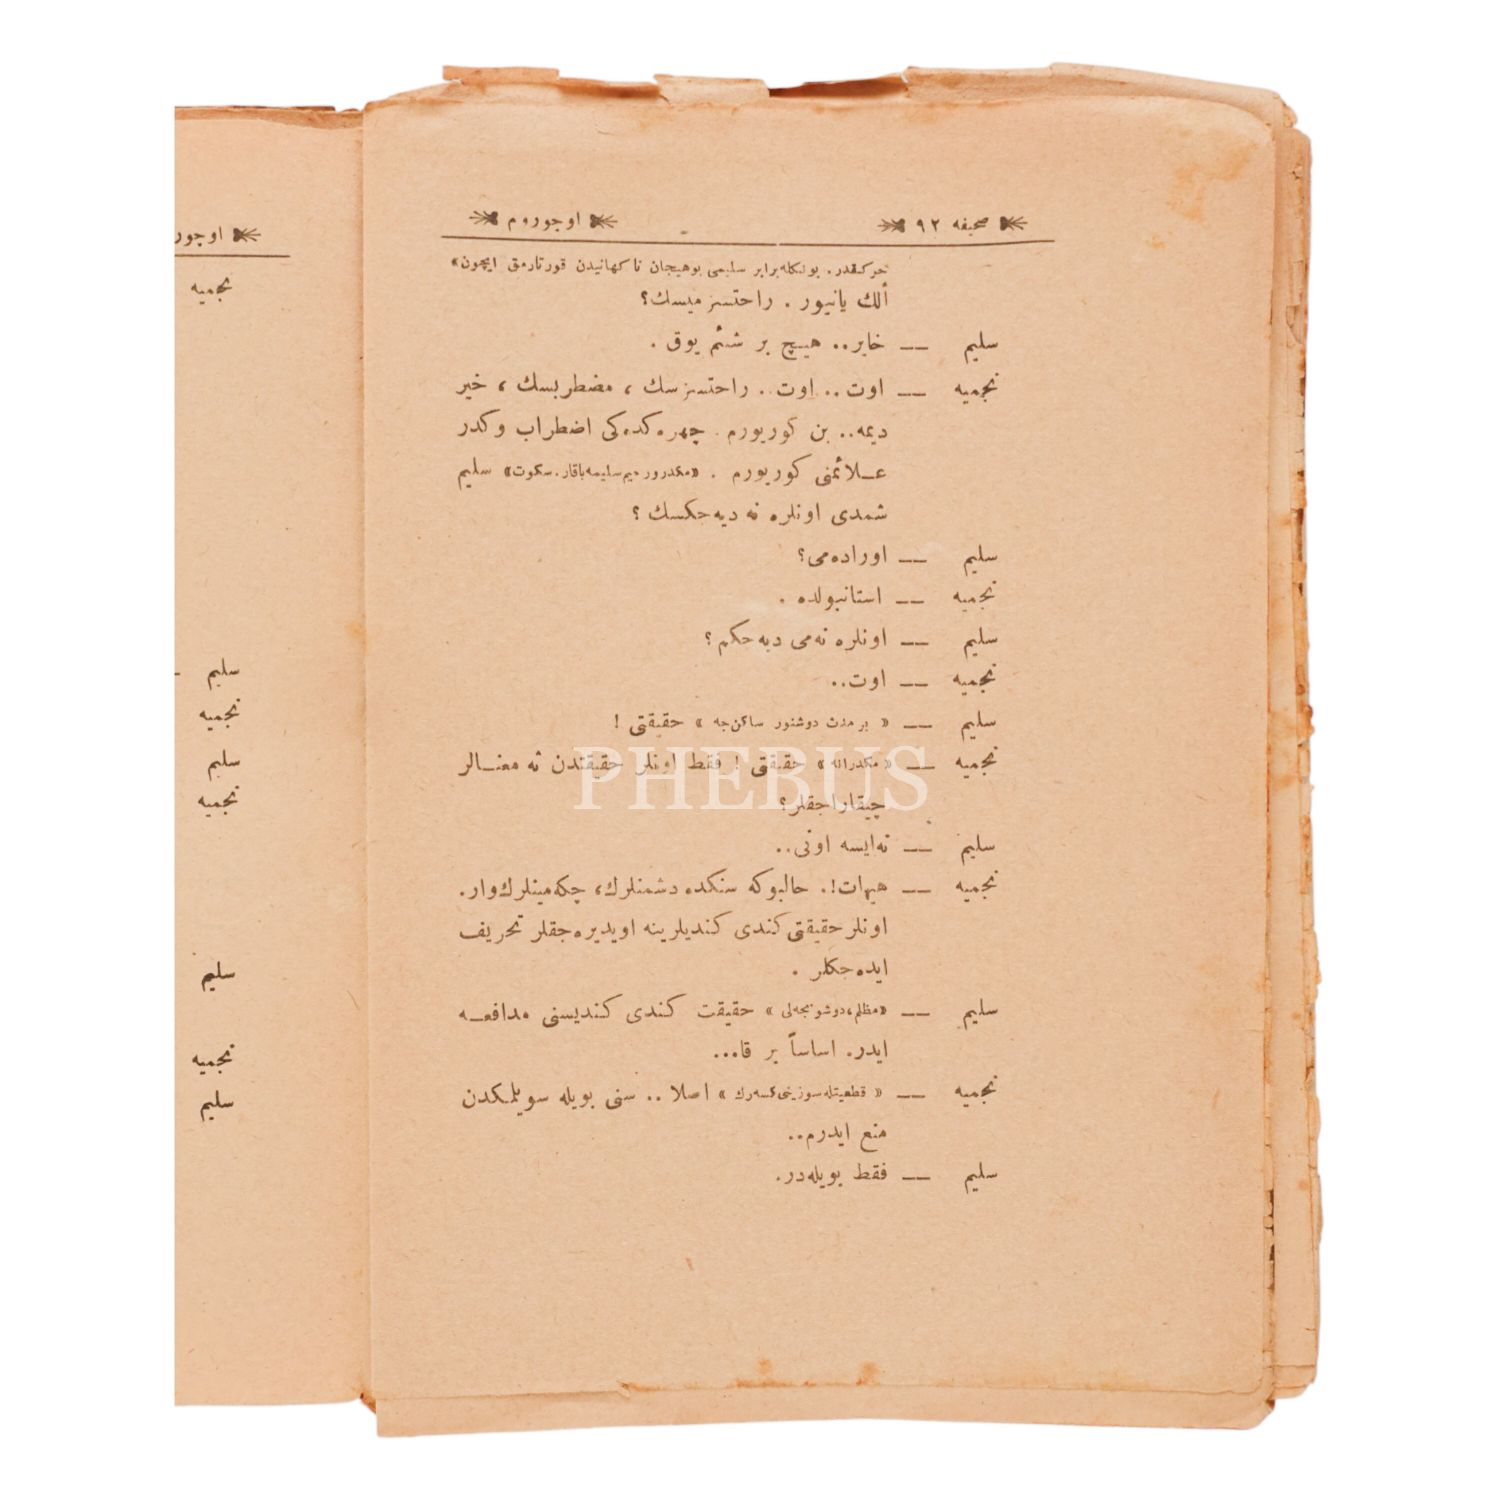 صحیفه ٩٢
اوچوروم
حرکتدر. بونکله برابر سلیمی بوهیجان ناکهانیدن قورتارمق ایچون»
ألك یانیور. راحتسز میسك؟
سلیم — خایر.. هیچ بر شئم یوق.
نجمیه — اوت.. اوت.. راحتسزسك، مضطربسك، خیر
دیمه.. بن کوریورم. چهره‌کده‌کی اضطراب وکدر
علائمنی کوریورم. سلیم
شمدی اونلره نه دیه‌جکسك؟
سلیم — اوراده‌می؟
نجمیه — استانبولده.
سلیم — اونلره نه‌می دیه‌جکم؟
نجمیه — اوت..
سلیم — «بر مدت دوشنور ساکن‌جه» حقیقتی!
نجمیه — «مکدرانه» حقیقتی! فقط اونلر حقیقتدن نه معنالر
چیقاراجقلر؟
سلیم — نه‌ایسه اونی..
نجمیه — هیهات!. حالبوکه سنکده دشمنلرك، چکه‌مینلرك‌وار.
اونلر حقیقتی کندی کندیلرینه اویدیره‌جقلر تحریف
ایده‌جکلر.
سلیم — «مظلم، دوشونجه‌لی» حقیقت کندی کندیسنی مدافعه
ایدر. اساساً بر قا...
نجمیه — «قطعیتله سوزینی کسه‌رك» اصلا.. سنی بویله سویلمکدن
منع ایدرم..
سلیم — فقط بویله‌در.
نجمیه
سلیم
نجمیه
سلیم
نجمیه
سلیم
نجمیه
سلیم
PHEBUS